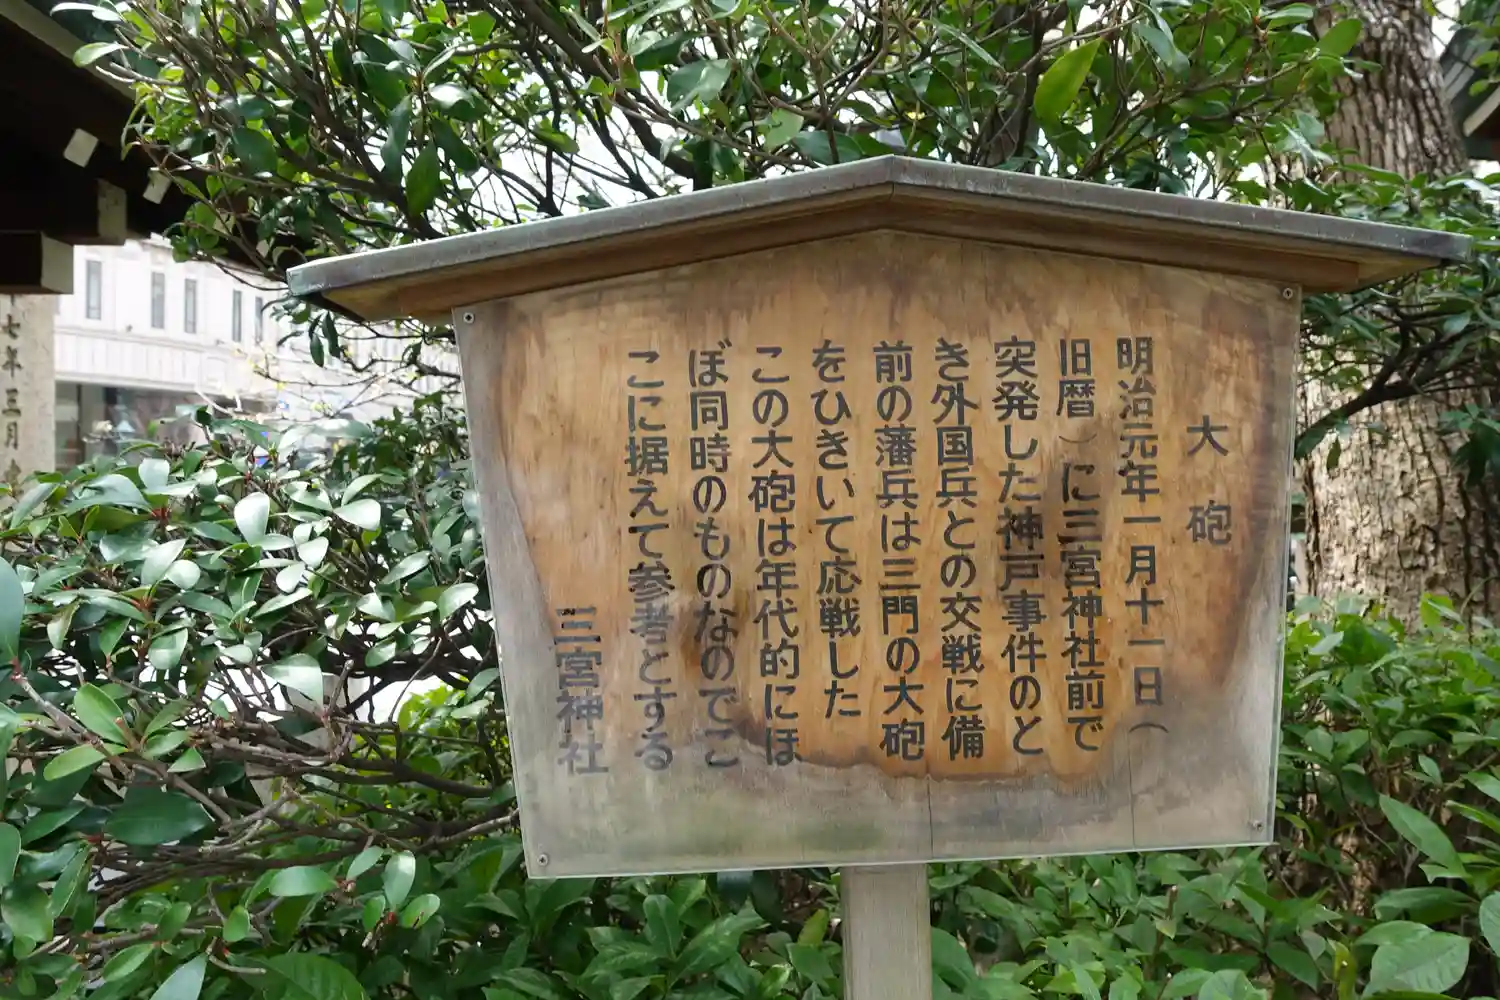 大砲
明治元年一月十一日（
旧暦）に三宮神社前で
突発した神戸事件のと
き外国兵との交戦に備
前の藩兵は三門の大砲
をひきいて応戦した
この大砲は年代的にほ
ぼ同時のものなのでこ
こに据えて参考とする
三宮神社
七年三月